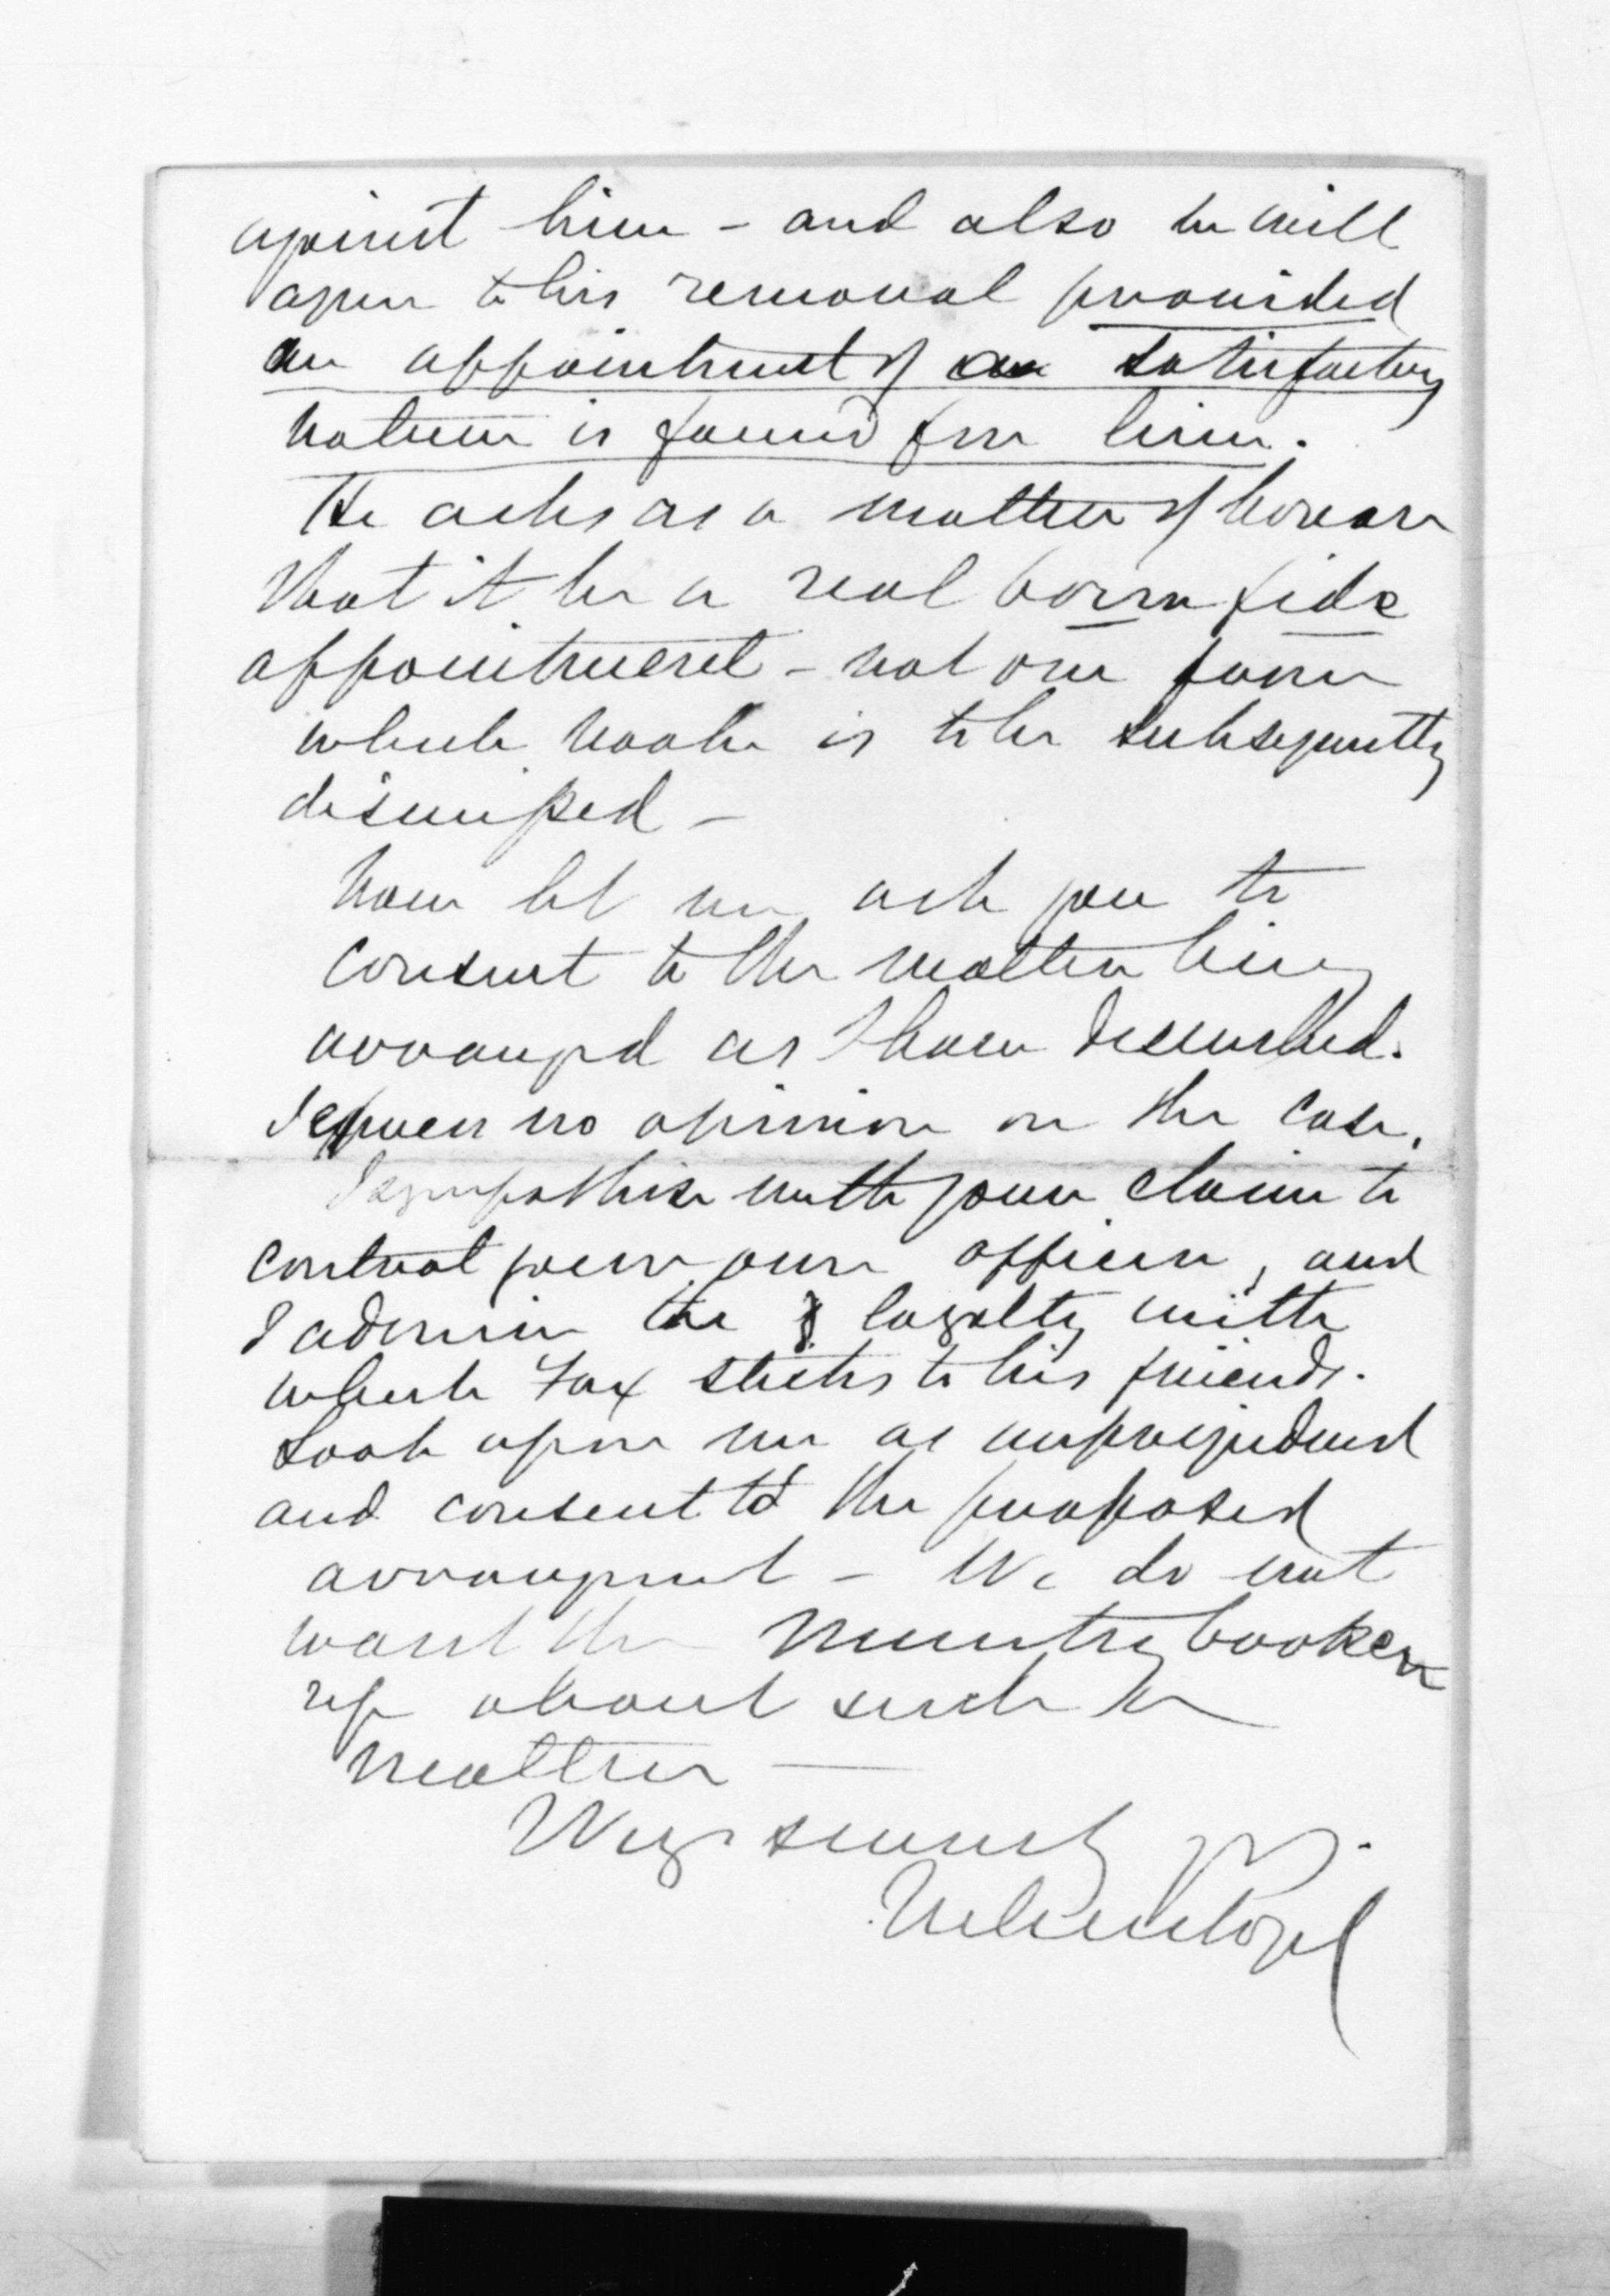 against him - and also he will
agree to his removal provided
an appointment of a satisfactory
nature is found for him.
He asks as a matter of honour
that it be a real bona fide
appointment - not one from
which Hooke is to be subsequently
dismissed -
Now let me ask you to
consent to the matter being
arranged as I have described.
I express no opinion on the case.
I sympathise with your claim to
control your own officers, and
I admire the loyalty with
which Fox sticks to his friends.
Look upon me as unprejudiced
and consent to the proposed
arrangement - We do not
want the Ministry broken
up about such a
matter -
Very sincerely yrs.
Julius Vogel